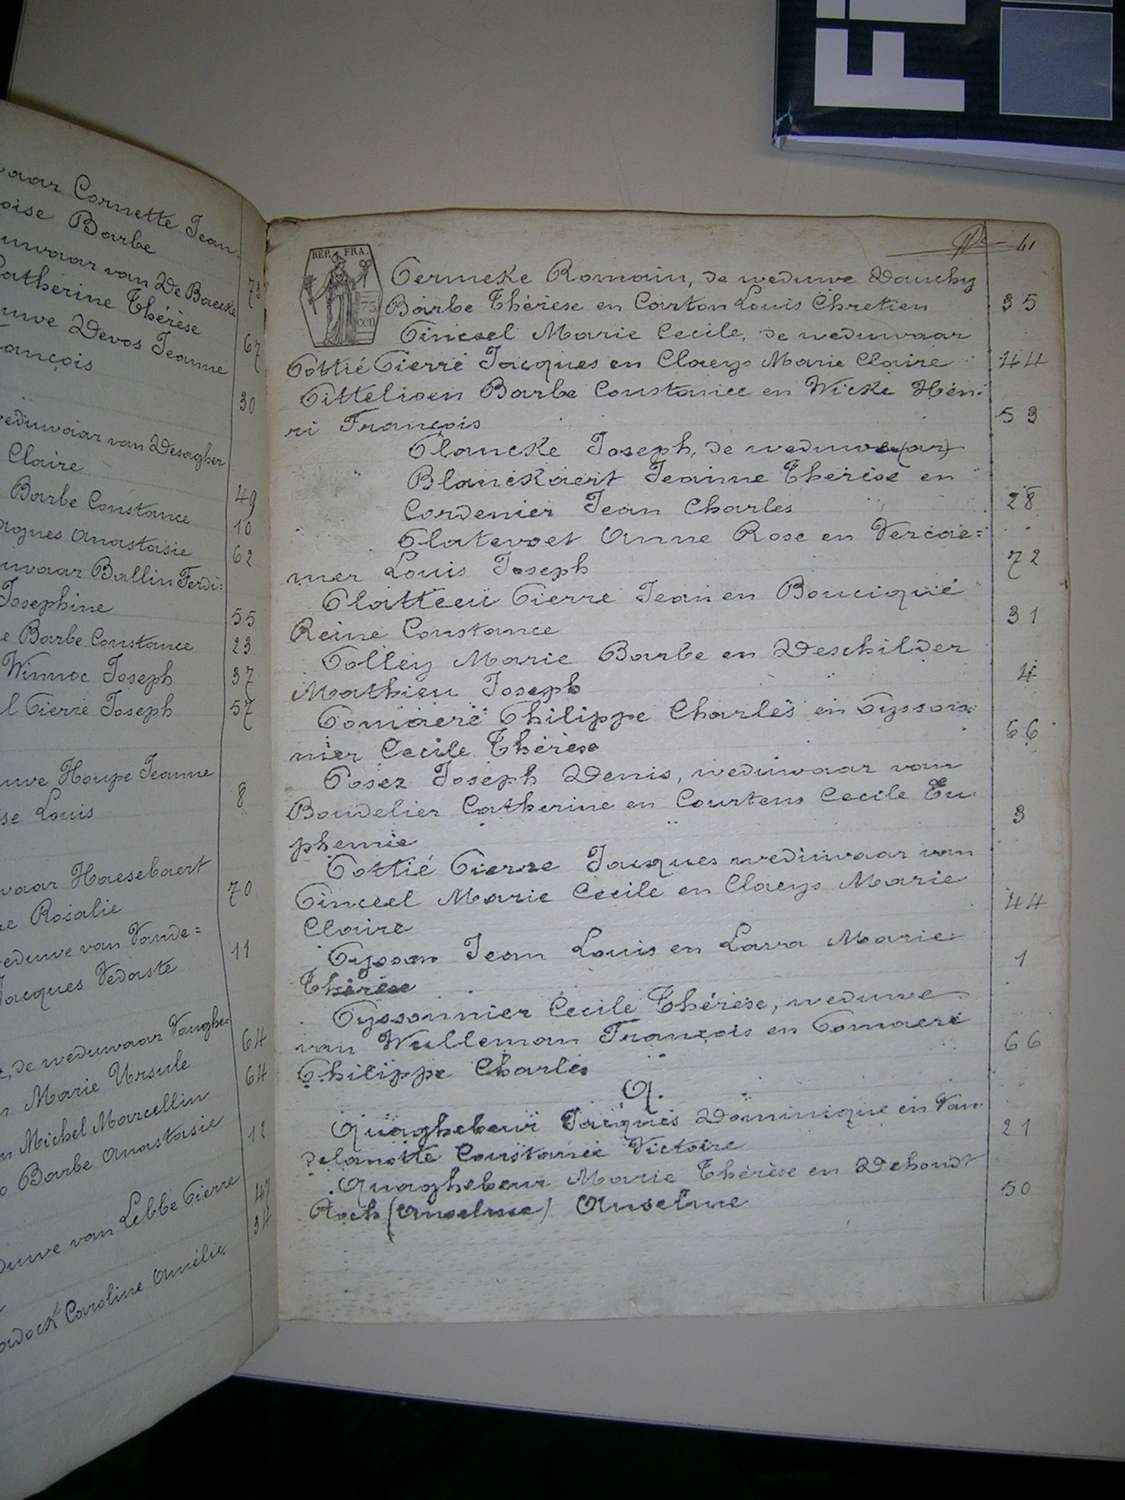 FI
waar Cornette Jean
Barbe
van De Baecke 73
Catherine Thérèse
Devos Jeanne 67
François
30
weduwaar van Desagher
Claire 49
Barbe Constance 10
Anastasie 62
Ballin Ferdi-
Josephine 55
Barbe Constance 23
Winnoc Joseph 37
Pierre Joseph 57
Houpe Jeanne
Louis 8
Haesebaert
Rosalie 70
weduwe van Vande=
Jacques Vedaste 11
de weduwaar Vanghe
Marie Ursule 64
Michel Marcellin 64
Barbe Anastasie 12
van Lebbe Pierre 47
34
Caroline Amélie
61
REP. FRA.
75
cen
Permeke Romain, de weduwe Dauchy
Barbe Thérèse en Carton Louis Chretien 35
Pinceel Marie Cecile, de weduwaar
Pottié Pierre Jacques en Claeys Marie Claire 44
Pittelioen Barbe Constance en Wicke Hen-
ri François 53
Plancke Joseph, de weduwe(ar)
Blanckaert Jeanne Thérèse en
Cordenier Jean Charles 28
Platevoet Anne Rose en Vercae=
mer Louis Joseph 72
Platteeu Pierre Jean en Bouciqué
Reine Constance 31
Polley Marie Barbe en Deschilder
Mathieu Joseph 4
Pomaere Philippe Charles en Pysson-
nier Cecile Thérèse 66
Posez Joseph Denis, weduwaar van
Boudelier Catherine en Courtens Cecile Eu
phemie 3
Pottié Pierre Jacques weduwaar van
Pinceel Marie Cecile en Claeys Marie
Claire 44
Pysson Jean Louis en Lava Marie
Thérèse 1
Pyssonnier Cecile Thérèse, weduwe
van Wulleman François en Pomaere
Philippe Charles 66
Q.
Quaghebeur Jacques Dominique en Van
delanotte Constance Victoire 21
Quaghebeur Marie Thérèse en Dehondt
Roch (Anselme) Anselme 50